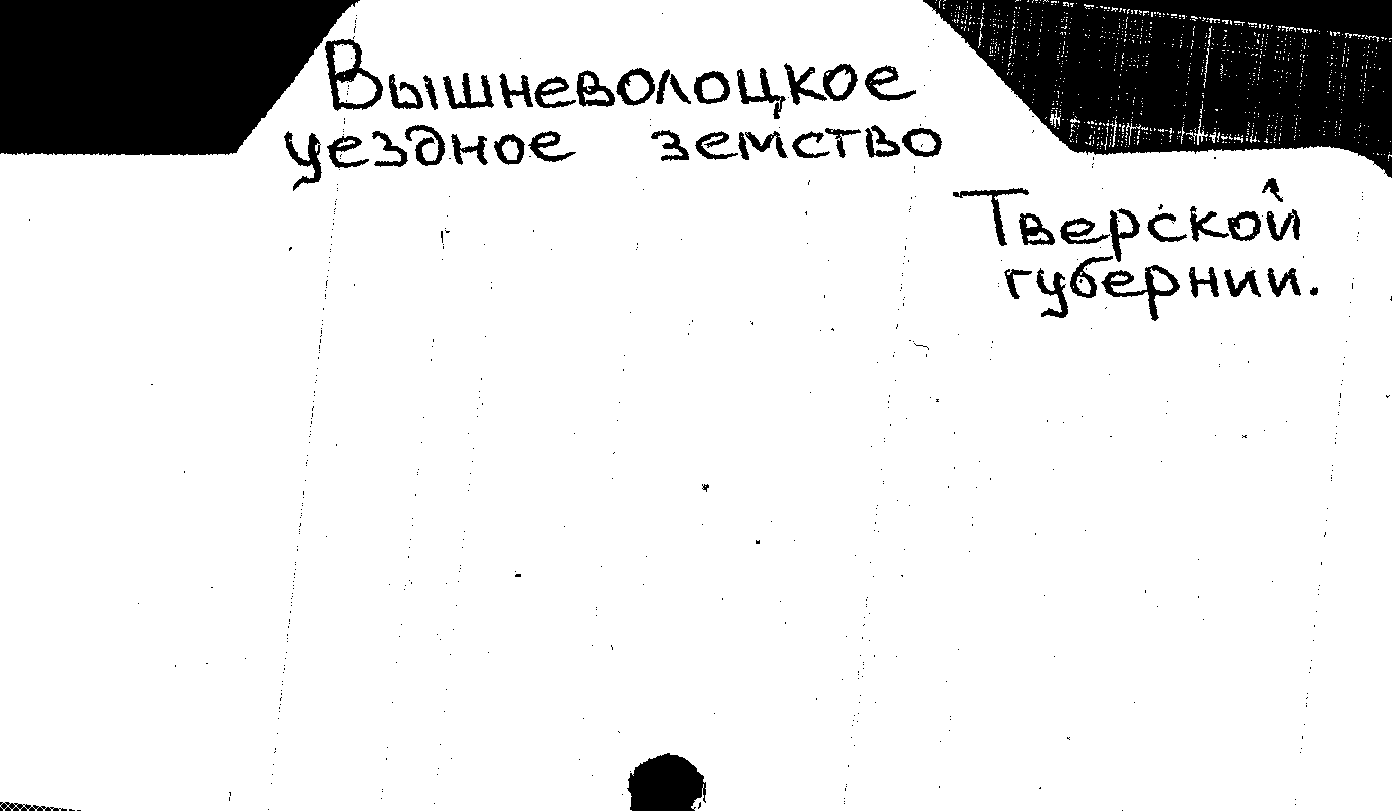 Вышневолоцкое
уездное земство
Тверской
губернии.